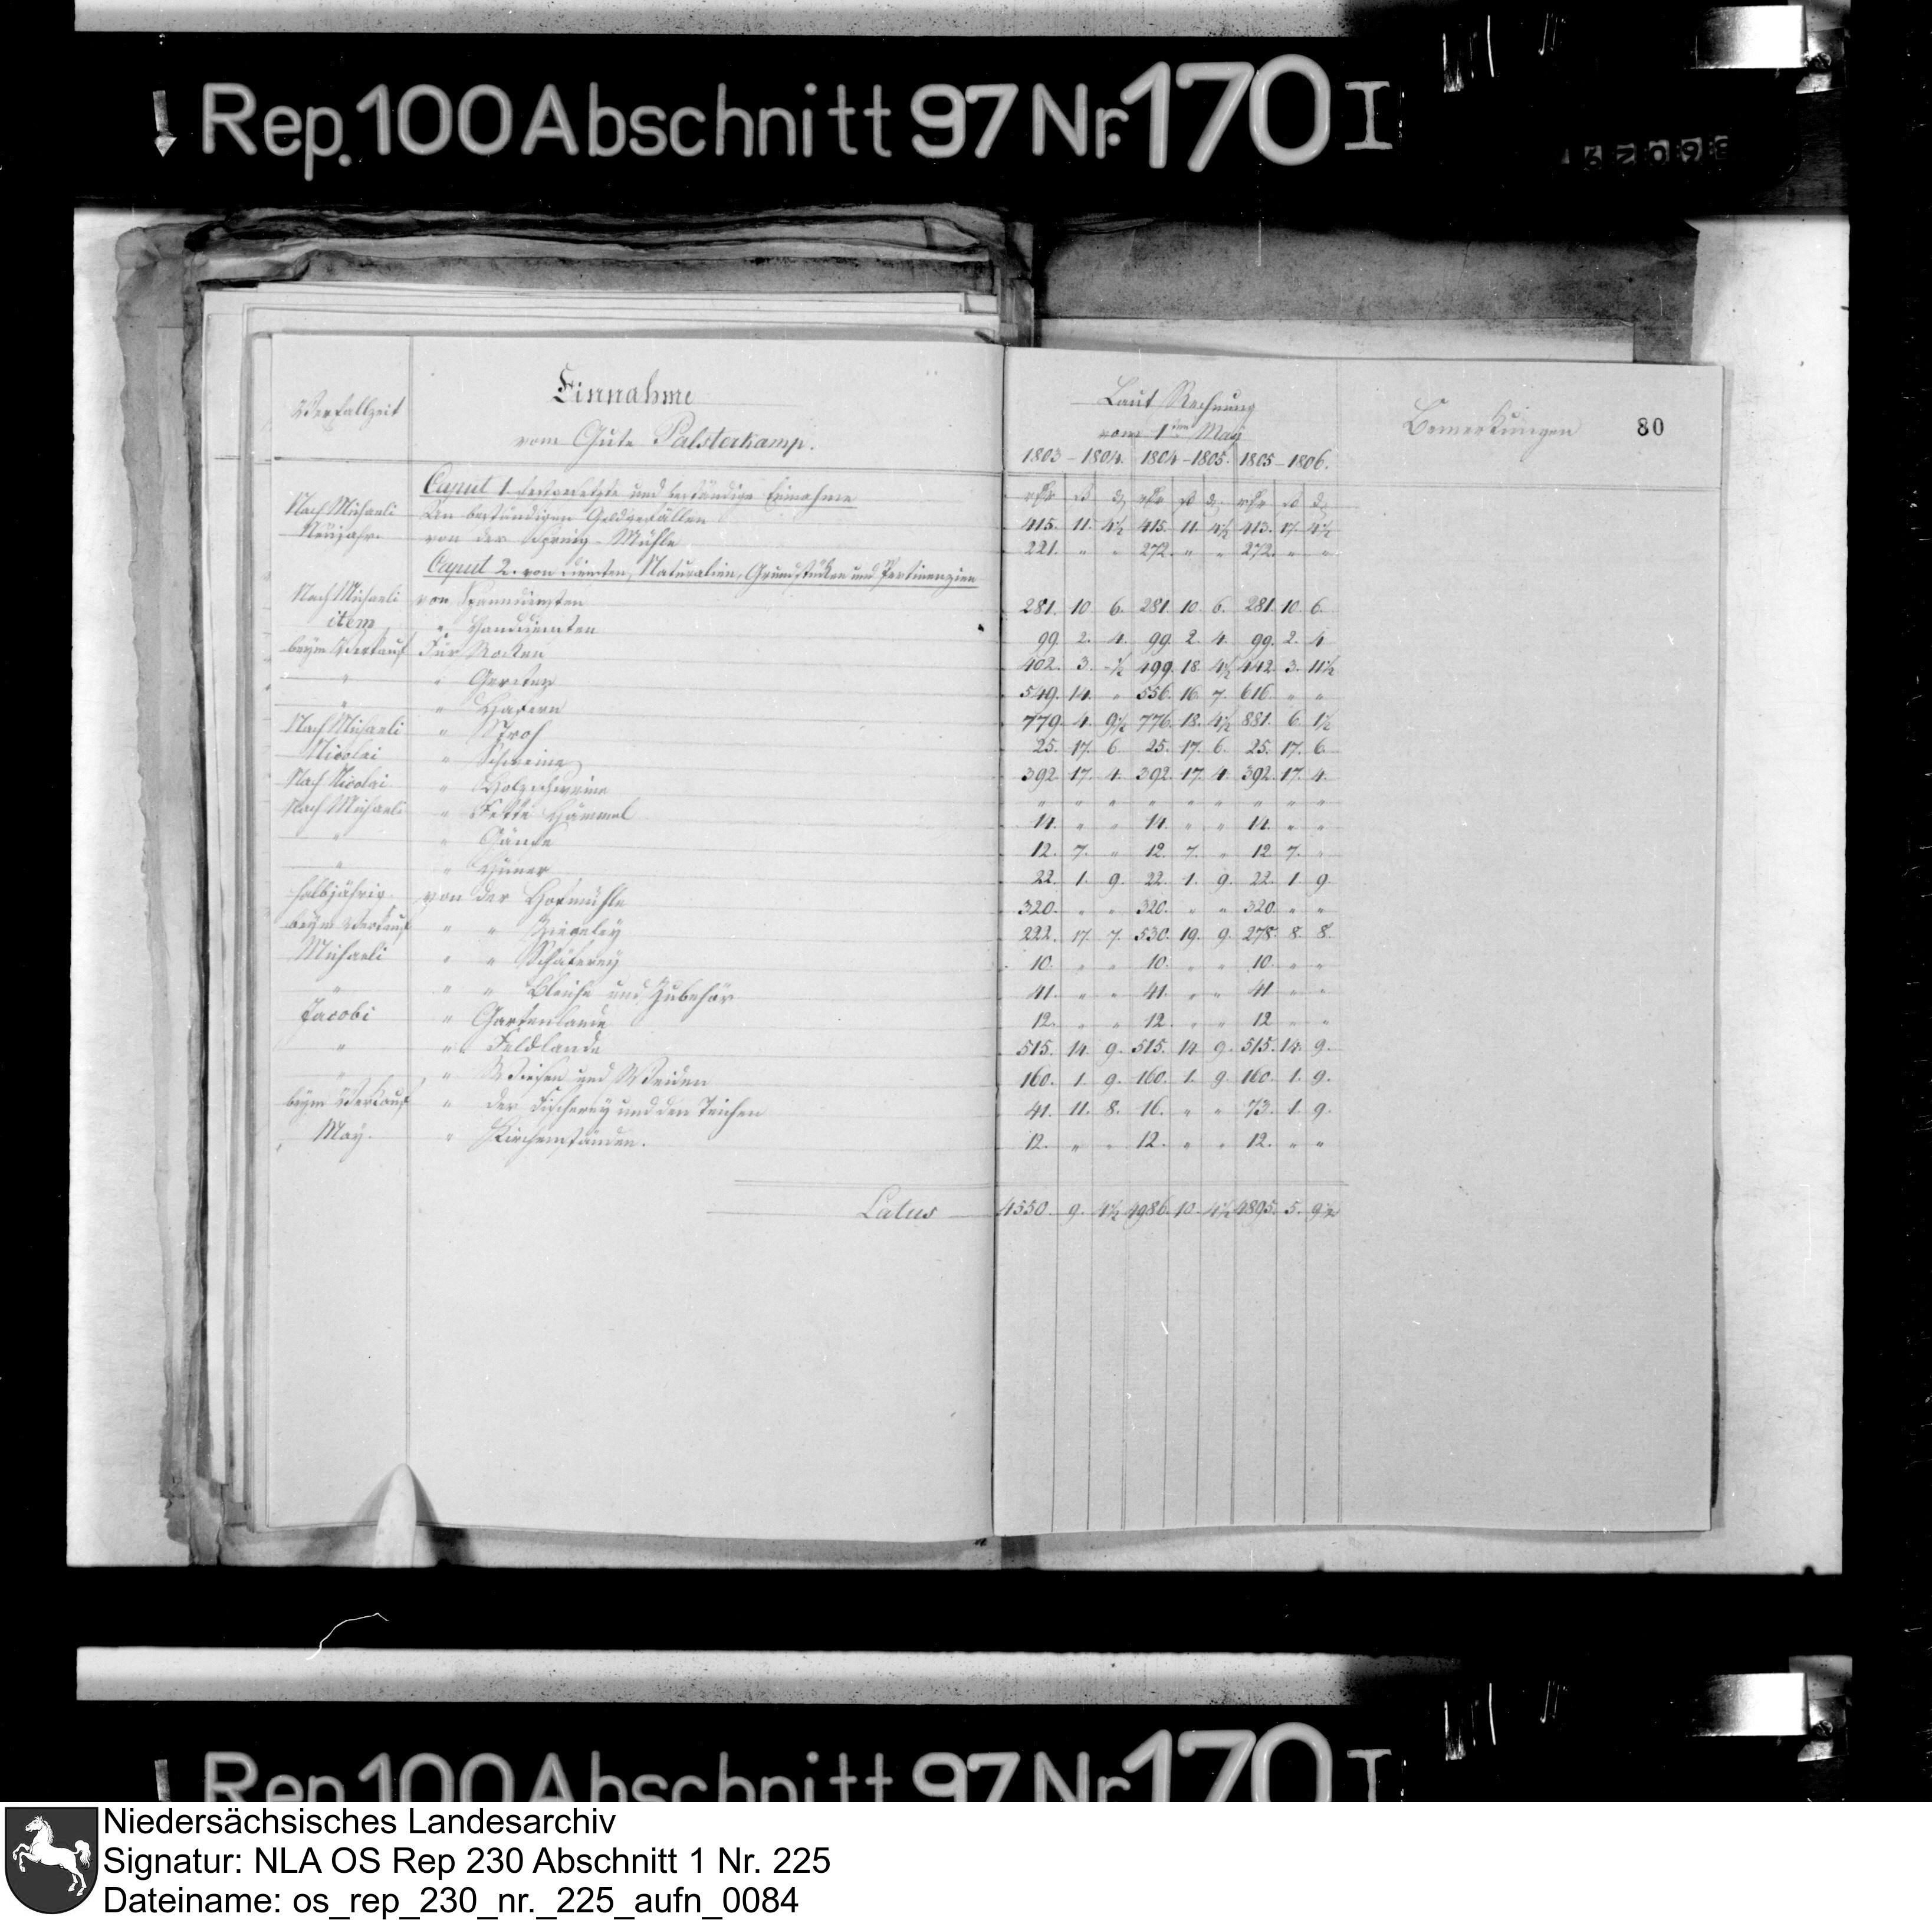 Rep. 100 Abschnitt 97 Nr. 170 I
Einnahme
Verfallzeit
vom Gute Palsterkamp.
Laut Rechnung
vom 1ten May
Bemerkungen
80
1803 - 1804. 1804 - 1805. 1805 - 1806.
Caput 1. festgesetzte und beständige Einnahme
Nach Michaeli An beständigen Geldgefällen 415. 11. 4½ 415. 11. 4½ 413. 17. 4½
Neüjahr. von der Mühle 221. " " 272. " " 272. " "
Caput 2. von Diensten, Naturalien, Grundstücken und Pertinenzien
Nach Michaeli von Spanndiensten 281. 10 6. 281. 10. 6. 281. 10. 6.
item " Handdiensten 99. 2. 4. 99. 2. 4. 99. 2. 4
beym Verkauf Für Rocken 402. 3. -½ 499. 18. 4½ 442. 3. 11½
" " Gersten 549. 14. " 556. 16. 7. 616. " "
" " Hafern 779. 4. 9½ 776. 18. 4½ 881. 6 1½
Nach Michaeli " Stroh 25. 17. 6. 25. 17. 6. 25. 17. 6.
Nicolai " Schweine 392. 17. 4. 392. 17. 4. 392. 17. 4.
Nach Nicolai " Holzschweine " " " " " " " " "
Nach Michaeli " Fette Hämmel 14. " " 14. " " 14. " "
" " Gänse 12. 7. " 12. 7. " 12 7. "
" " Hüner 22. 1. 9. 22. 1. 9. 22. 1 9.
halbjährig von der Hofmühle 320. " " 320. " " 320. " "
beym Verkauf " " Ziegeley 222. 17. 7. 530. 19. 9. 278. 8. 8.
Michaeli " " Schäferey 10. " " 10. " " 10. " "
" " " Bleiche und Zubehör 41. " " 41. " " 41 " "
Jacobi " Gartenlande 12. " " 12. " " 12 " "
" " Feldlande 515. 14. 9. 515. 14 9. 515. 14. 9.
" " Wiesen und Weiden 160. 1. 9. 160. 1. 9. 160. 1. 9.
beym Verkauf " der Fischerey und den Teichen 41. 11. 8. 16. " " 73. 1. 9.
May. " Kirchenständen. 12. " " 12. " " 12. " "
Latus 4550. 9. 4½ 4986. 10. 4½ 4895. 5. 9½
Rep. 100 Abschnitt 97 Nr. 170 I
Niedersächsisches Landesarchiv
Signatur: NLA OS Rep 230 Abschnitt 1 Nr. 225
Dateiname: os_rep_230_nr._225_aufn_0084